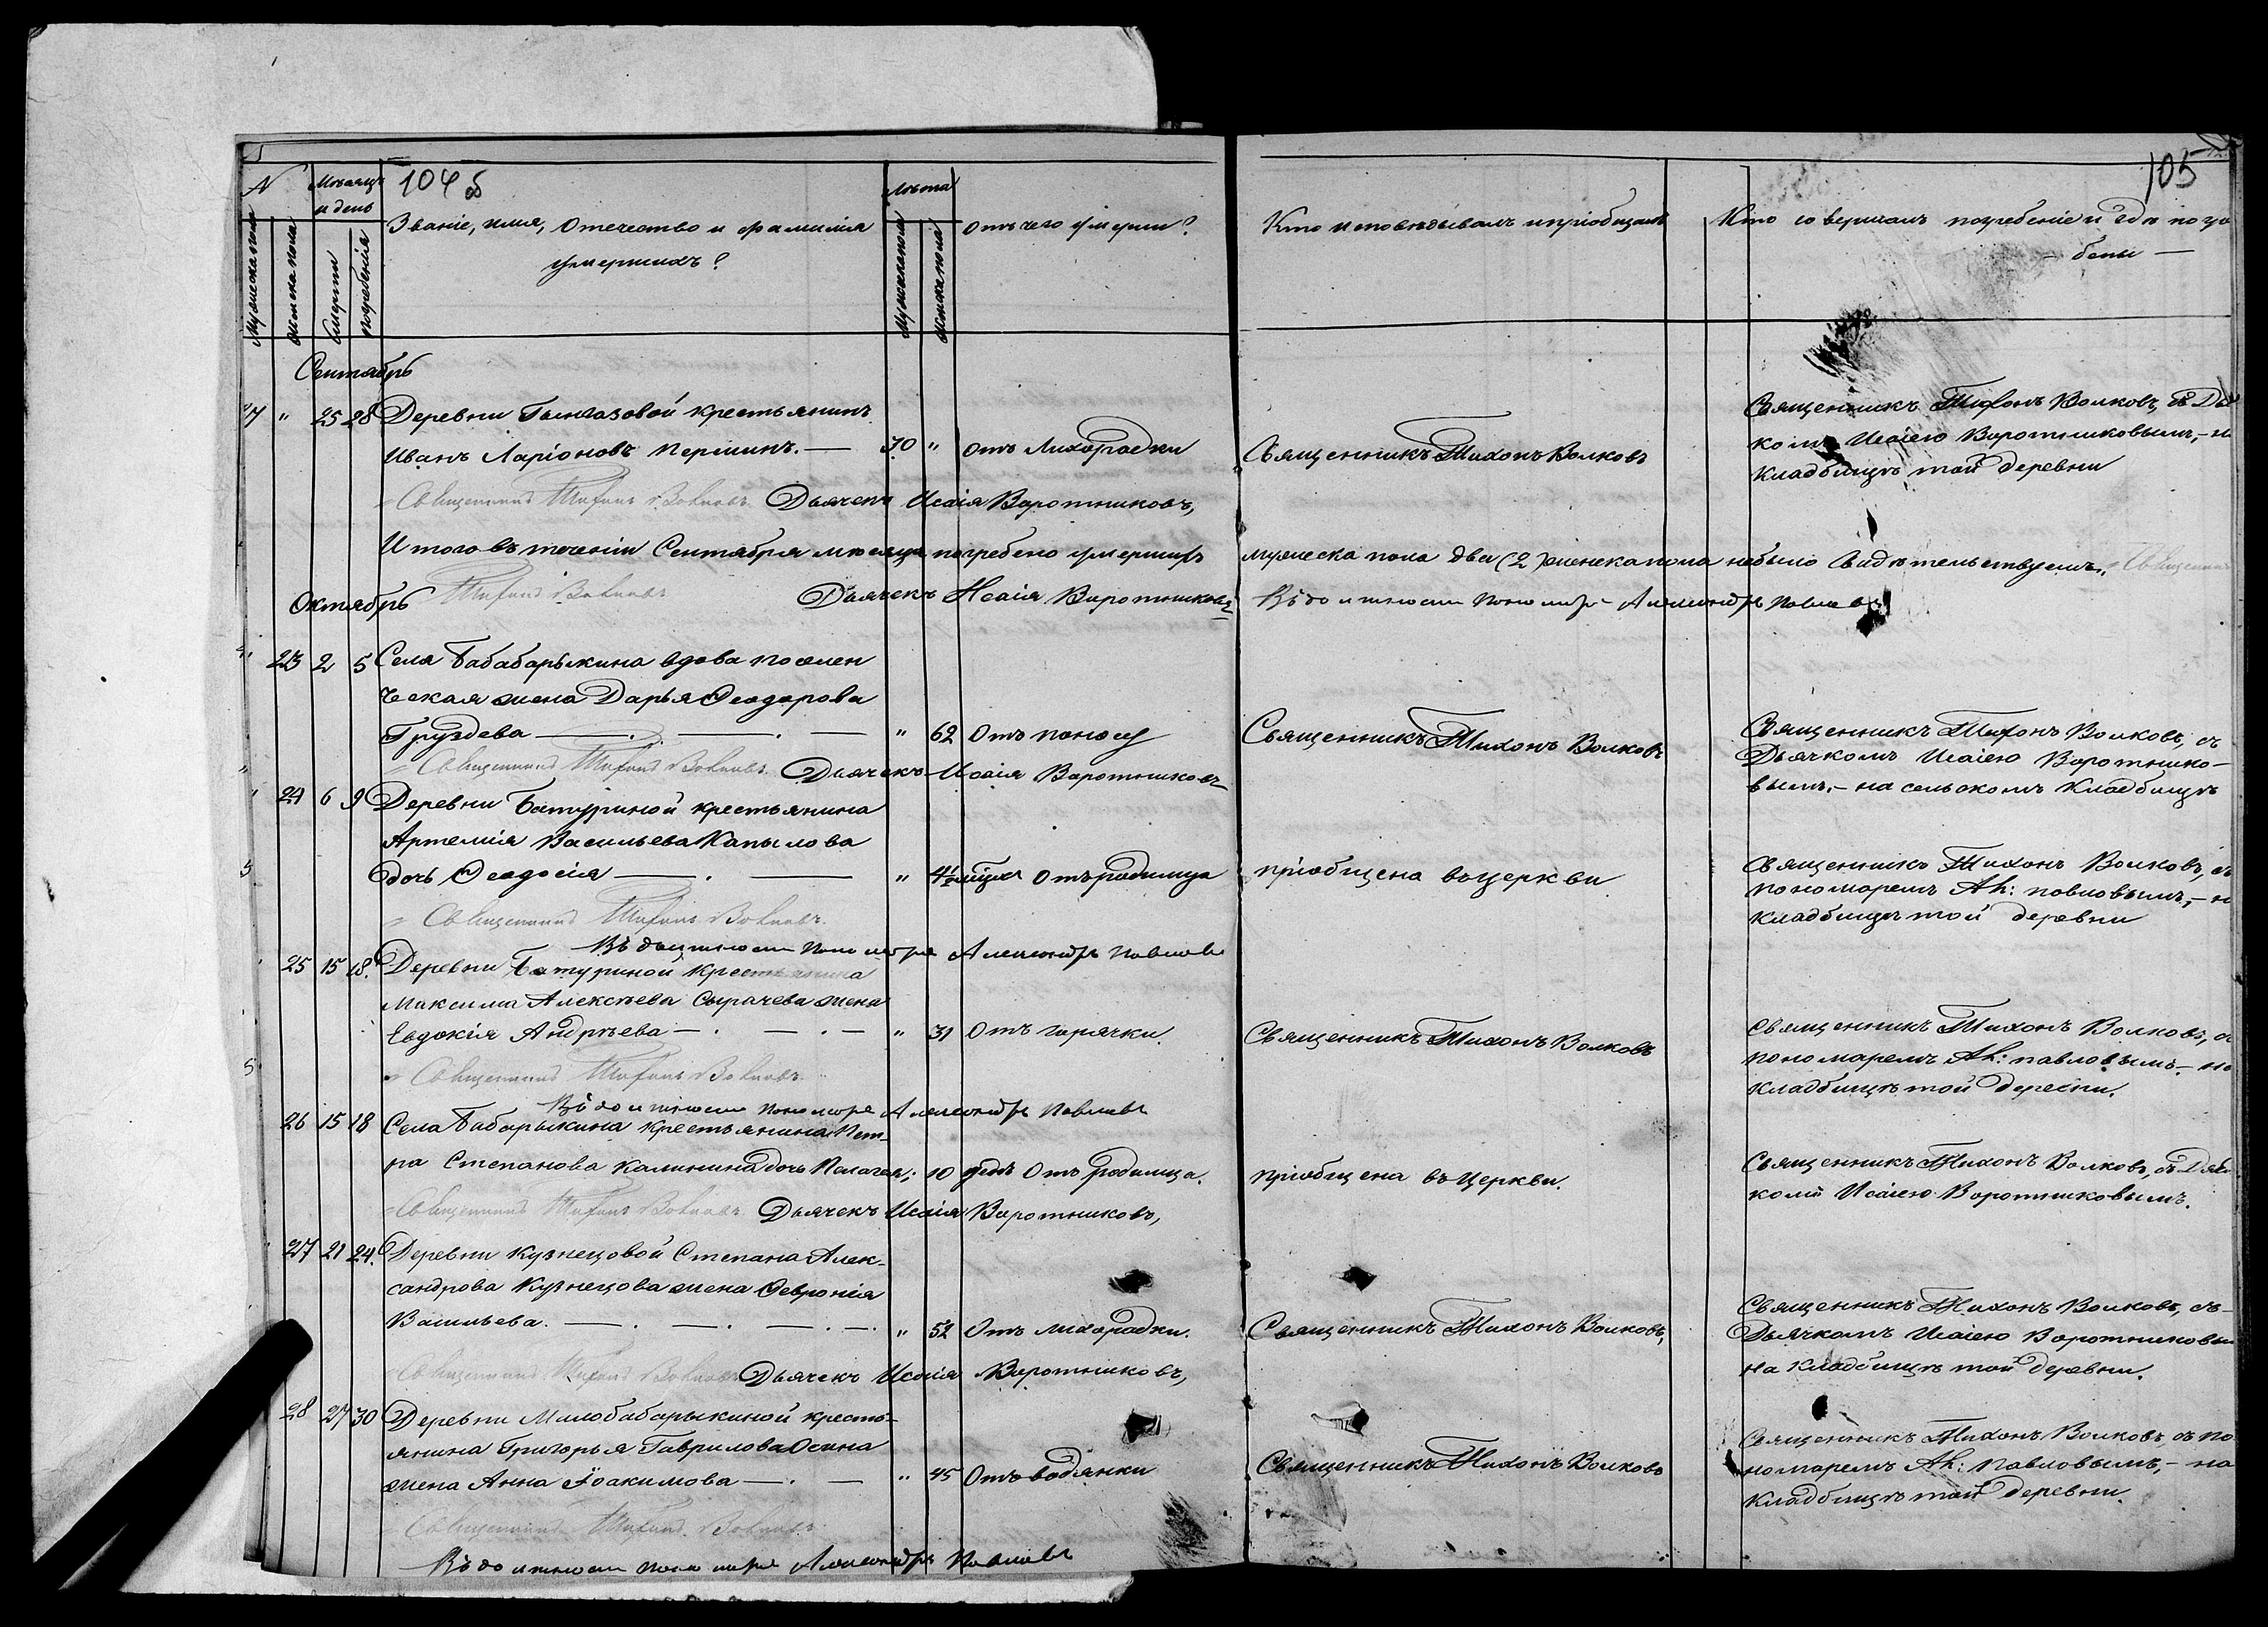 104 об
105
№
Мѣсяцъ и день
Мужеска пола
Женска пола
Смерти
Погребенія
Званіе, имя, отечество и фамилія
умершихъ?
Лѣта
Мужска пола
Женска пола
Отъ чего умерли?
Кто исповѣдывалъ и пріобщалъ
Кто совершалъ погребеніе и гдѣ погре
бены —
Сентябрь
" 25 28 Деревни крестьянинъ
Иванъ Ларіоновъ Першинъ. — 70 " отъ Лихорадки
Священникъ Тихонъ Волковъ
Священникъ Тихонъ Волковъ, съ Дья
комъ Исаіею Воротниковымъ, – н
кладбищѣ той деревни
Священникъ Тихонъ Волковъ. Дьячекъ Исаія Воротниковъ,
Итого въ теченіи Сентября мѣсяца погребено умершихъ мужеска пола два (2) женска пола небыло Свидѣтельствуемъ. Священник
Тихонъ Волковъ Дьячекъ Исаія Воротниковъ Въ должности пономаря Александръ Павловъ
Октябрь
" 23 2 5 Села Бабабарыкина вдова поселен
ческая жена Дарья Ѳеодорова
Груздева — . — . — " 62 Отъ поносу
Священникъ Тихонъ Волковъ
Священникъ Тихонъ Волковъ, съ
Дьячкомъ Исаіею Воротнико-
вымъ, – на сельскомъ кладбищѣ
Священникъ Тихонъ Волковъ. Дьячекъ Исаія Воротниковъ
24 6 9 Деревни Батуриной крестьянина
Артемія Васильева Капылова
дочь Ѳеодосія — . — " Отъ родимца
пріобщена въ церкви
Священникъ Тихонъ Волковъ, съ
пономаремъ Ал: Павловымъ, – н
кладбищѣ той деревни
Священникъ Тихонъ Волковъ.
Въ должности пономаря Александръ Павловъ
25 15 18. Деревни Батуриной крестьянина
Максима Алексѣева Сырачева жена
Евдокія Андрѣева — . — . — " 31 Отъ горячки.
Священникъ Тихонъ Волковъ
Священникъ Тихонъ Волковъ, с
пономаремъ Ал: Павловымъ. – на
кладбищѣ той деревни.
Священникъ Тихонъ Волковъ.
Въ должности пономаря Александръ Павловъ
26 15 18 Села Бабарыкина крестьянина Пет-
ра Степанова Калинина дочь Палагея; 10 дней Отъ родимца.
пріобщена въ церкви.
Священникъ Тихонъ Волковъ, съ Дьяч
комъ Исаіею Воротниковымъ.
Священникъ Тихонъ Волковъ. Дьячекъ Исаія Воротниковъ,
27 21 24. Деревни Кузнецовой Степана Алек-
сандрова Кузнецова жена Ѳевронія
Васильева. — . — . — . — . " 52 Отъ лихорадки.
Священникъ Тихонъ Волковъ,
Священникъ Тихонъ Волковъ, съ-
Дьячкомъ Исаіею Воротниковы
на кладбищѣ той деревни.
Священникъ Тихонъ Волковъ Дьячекъ Исаія Воротниковъ,
28 27 30 Деревни Малобабарыкиной кресть-
янина Григорья Гаврилова Осина
жена Анна Іоакимова — . — " 45 Отъ водянки
Священникъ Тихонъ Волковъ
Священникъ Тихонъ Волковъ, съ по
номаремъ Ал: Павловымъ, – на
кладбищѣ той деревни.
Священникъ Тихонъ Волковъ.
Въ должности пономаря Александръ Павловъ